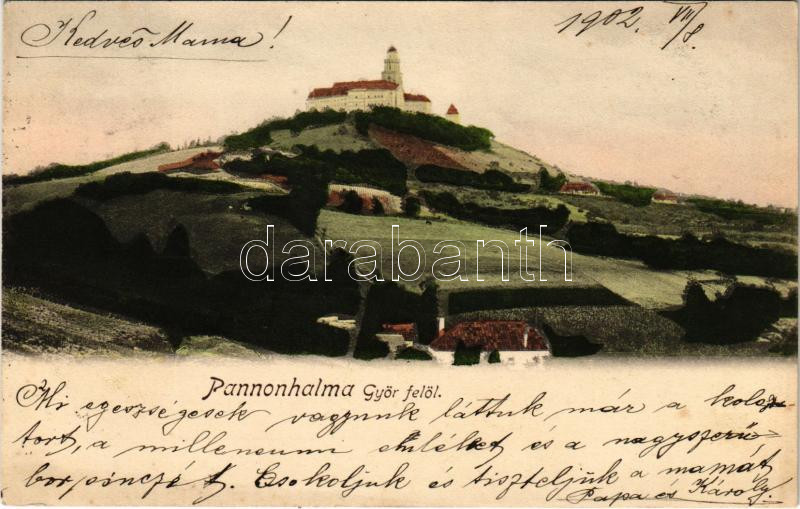 Kedves Mama!
1902. VII/8.
darabanth
Pannonhalma Györ felöl.
Mi egeszségesek vagyunk láttuk már a kolos
tort, a milleneumi emléket és a nagyszerű
bor pinczét. Csokoljuk és tiszteljük a mamát
Papa és Károly.